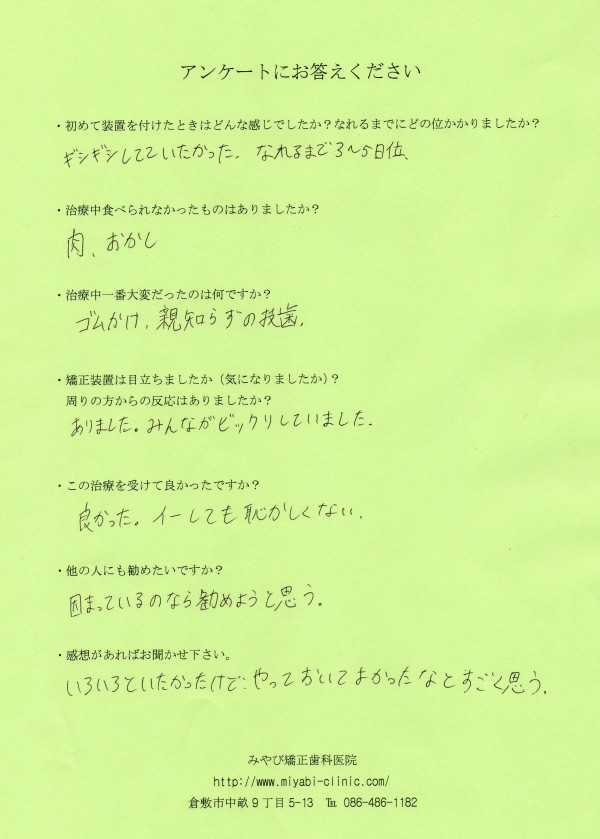 アンケートにお答えください
・初めて装置を付けたときはどんな感じでしたか？なれるまでにどの位かかりましたか？
ギシギシしてていたかった。なれるまで3〜5日位、
・治療中食べられなかったものはありましたか？
肉、おかし
・治療中一番大変だったのは何ですか？
ゴムかけ、親知らずの抜歯。
・矯正装置は目立ちましたか（気になりましたか）？
周りの方からの反応はありましたか？
ありました。みんながビックリしていました。
・この治療を受けて良かったですか？
良かった。イーしても恥かしくない。
・他の人にも勧めたいですか？
困まっているのなら勧めようと思う。
・感想があればお聞かせ下さい。
いろいろといたかったけど、やっておいてよかったなとすごく思う。
みやび矯正歯科医院
http://www.miyabi-clinic.com/
倉敷市中畝９丁目5-13 ℡ 086-486-1182